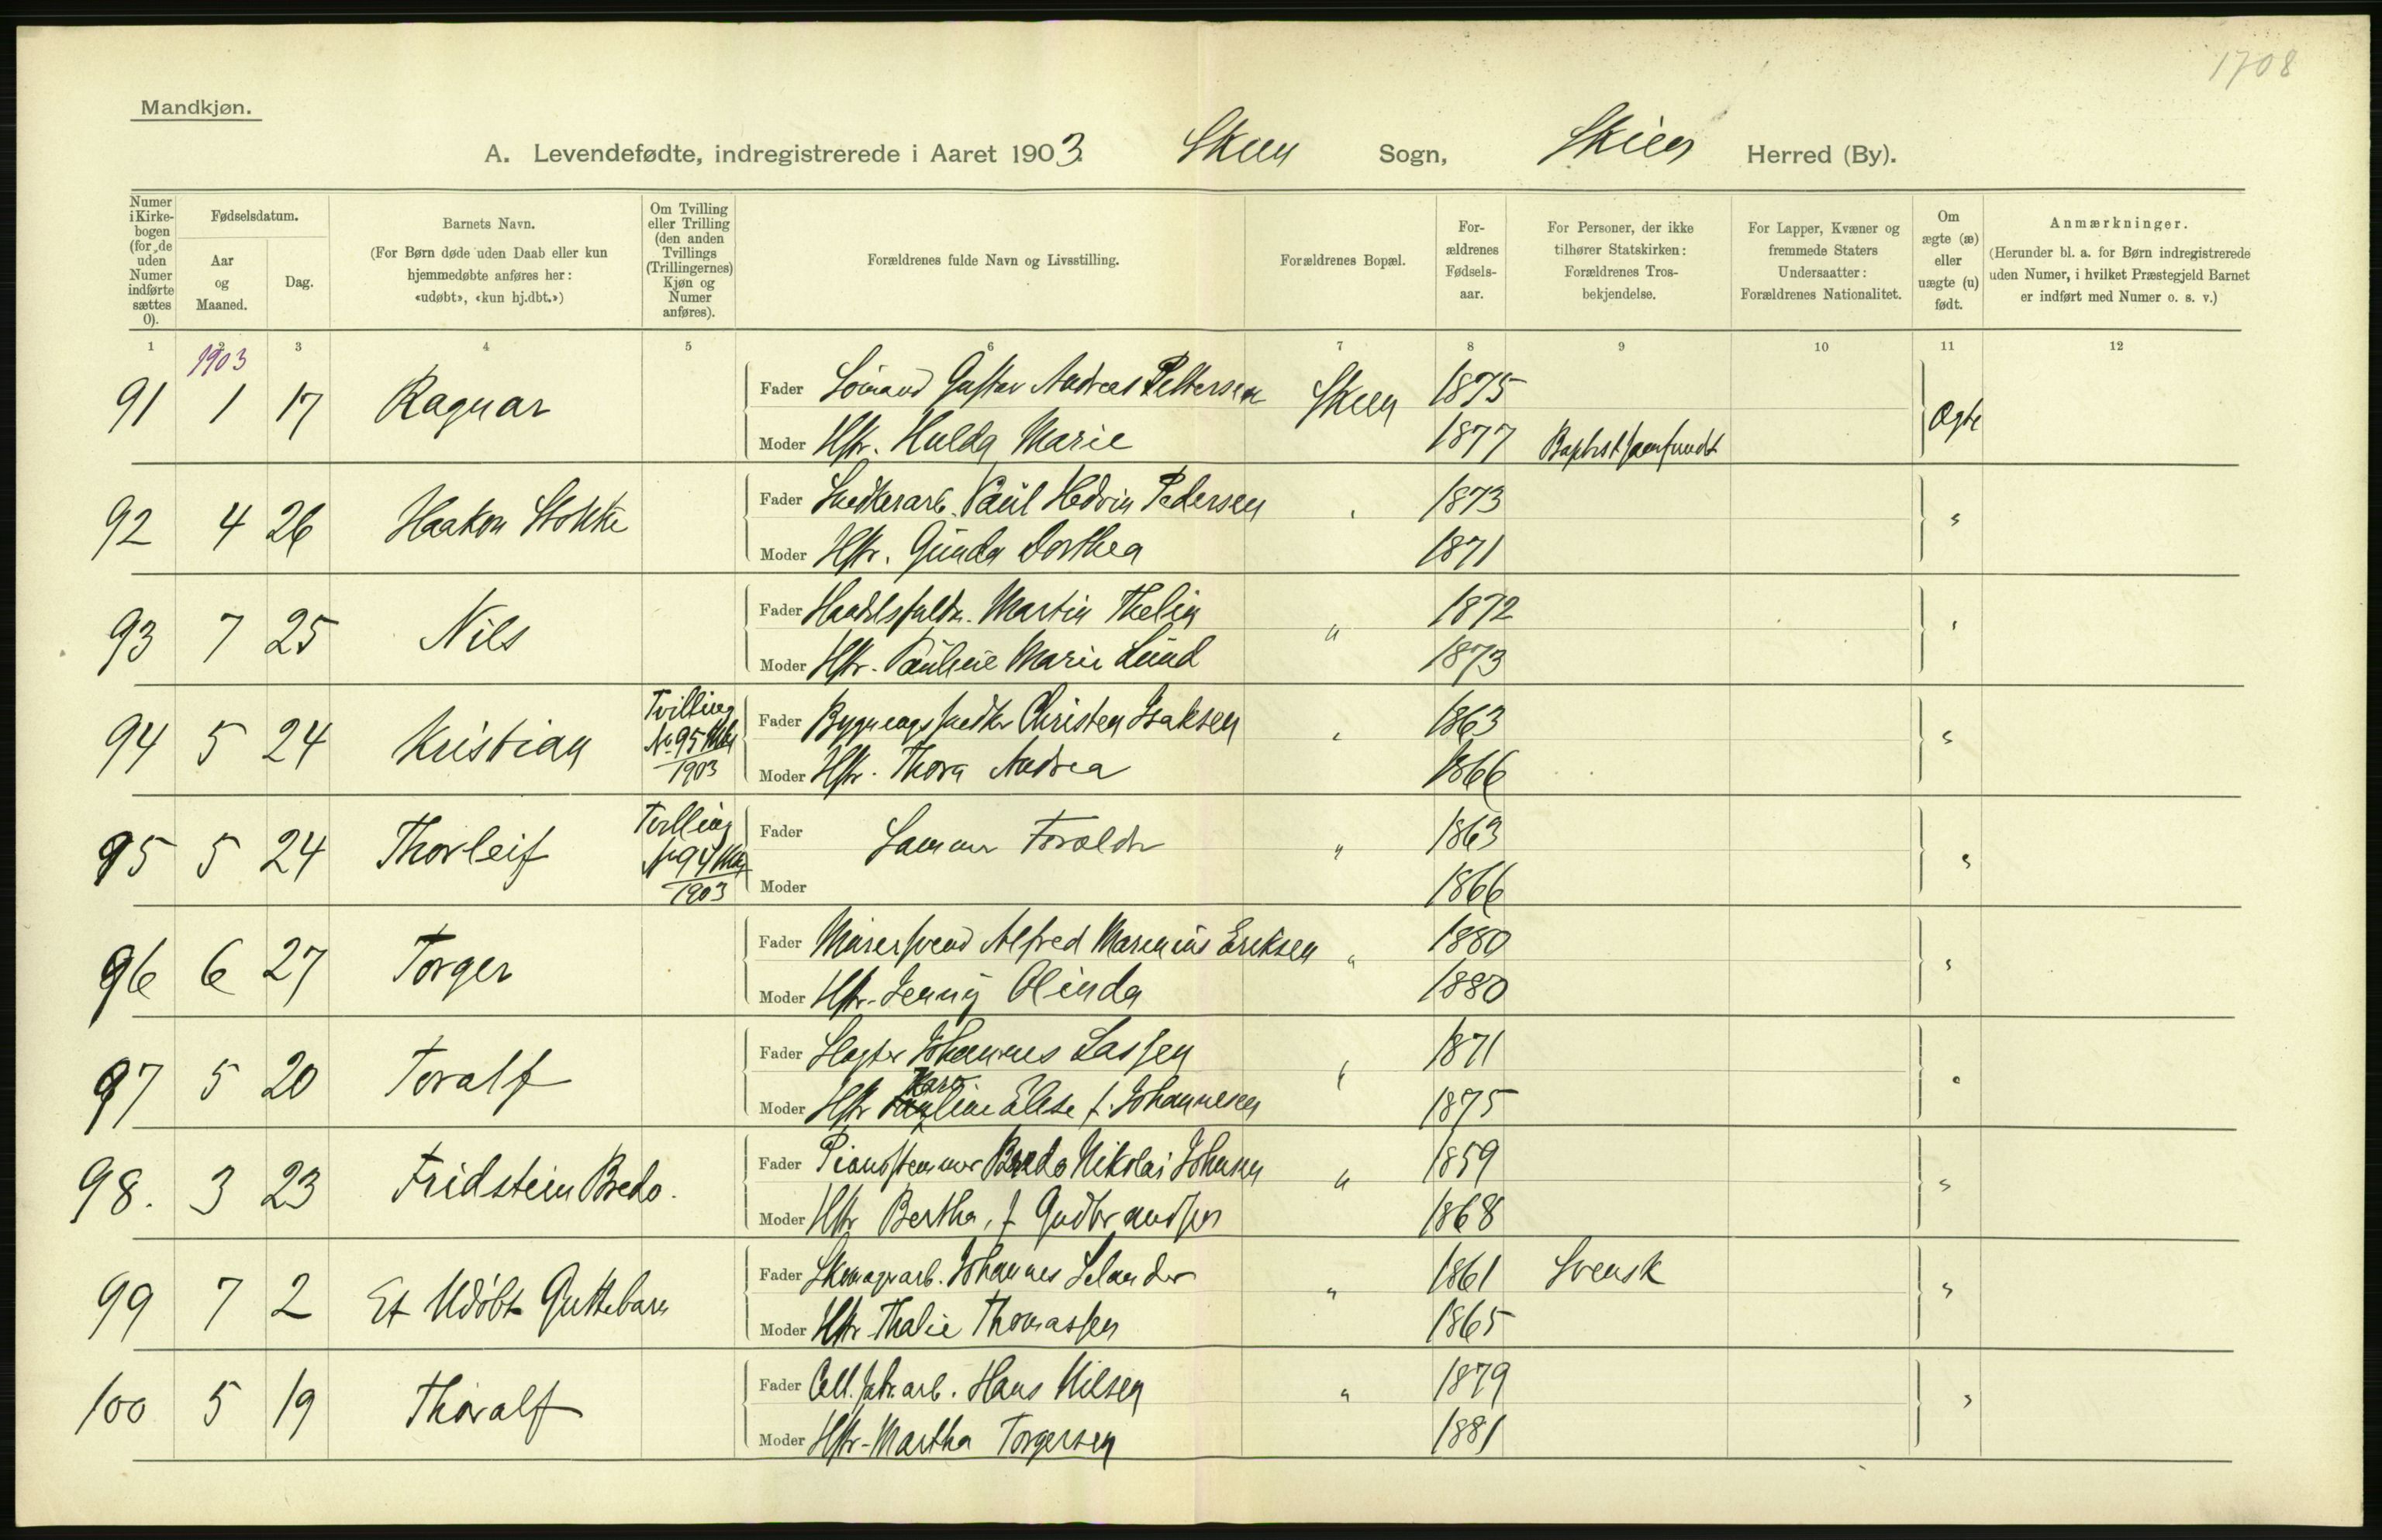 1708
Mandkjøn.
A. Levendefødte, indregistrerede i Aaret 1903 Skien Sogn, Skien Herred (By).
Numer i Kirke-bogen (for de uden Numer indførte sættes 0).
Fødselsdatum.
Aar og Maaned.
Dag.
Barnets Navn.
(For Børn døde uden Daab eller kun hjemmedøbte anføres her: «udøbt», «kun hj.dbt.»)
Om Tvilling eller Trilling (den anden Tvillings (Trillingernes) Kjøn og Numer anføres).
Forældrenes fulde Navn og Livsstilling.
Forældrenes Bopæl.
For-ældrenes Fødsels-aar.
For Personer, der ikke tilhører Statskirken: Forældrenes Tros-bekjendelse.
For Lapper, Kvæner og fremmede Staters Undersaatter: Forældrenes Nationalitet.
Om ægte (æ) eller uægte (u) født.
Anmærkninger.
(Herunder bl. a. for Børn indregistrerede uden Numer, i hvilket Præstegjeld Barnet er indført med Numer o. s. v.)
1 2 3 4 5 6 7 8 9 10 11 12
1903
91 1 17 Ragnar Fader Sømand Gustav Andreas Pettersen Skien 1875 Ægte
Moder Hstr. Hulda Marie 1877 Baptistsamfundet
92 4 26 Haakon Stokke Fader Snedkerarb. Paul Hedvin Pedersen " 1873 "
Moder Hstr. Gunda Dorthea 1871
93 7 25 Nils Fader Martin Thelin " 1872 "
Moder Hstr. Pauline Marie Lund 1873
94 5 24 Kristian Tvilling No 95 Mk 1903 Fader Bygningssnedker Christen Isaksen " 1863 "
Moder Hstr. Thora Andrea 1866
95 5 24 Thorleif Tvilling No 94 Mk 1903 Fader Samme Forældre " 1863 "
Moder 1866
96 6 27 Torger Fader Murersvend Alfred Marinius Eriksen " 1880 "
Moder Hstr. Jenny Olinda 1880
97 5 20 Toralf Fader Slagter Johannes Lassen " 1871 "
Moder Hstr Karoline Elise f. Johannesen 1875
98. 3 23 Fridstein Bredo. Fader Pianostemmer Bredo Nikolai Johnsen " 1859 "
Moder Hstr Bertha, f Gudbrandsen 1868
99 7 2 Et Udøbt Guttebarn Fader Skomagerarb. Johannes Selander " 1861 Svensk "
Moder Hstr Thalie Thomassen 1865
100 5 19 Thoralf Fader Cell.fabr.arb. Hans Nilsen " 1879 "
Moder Hstr. Martha Torgersen 1881